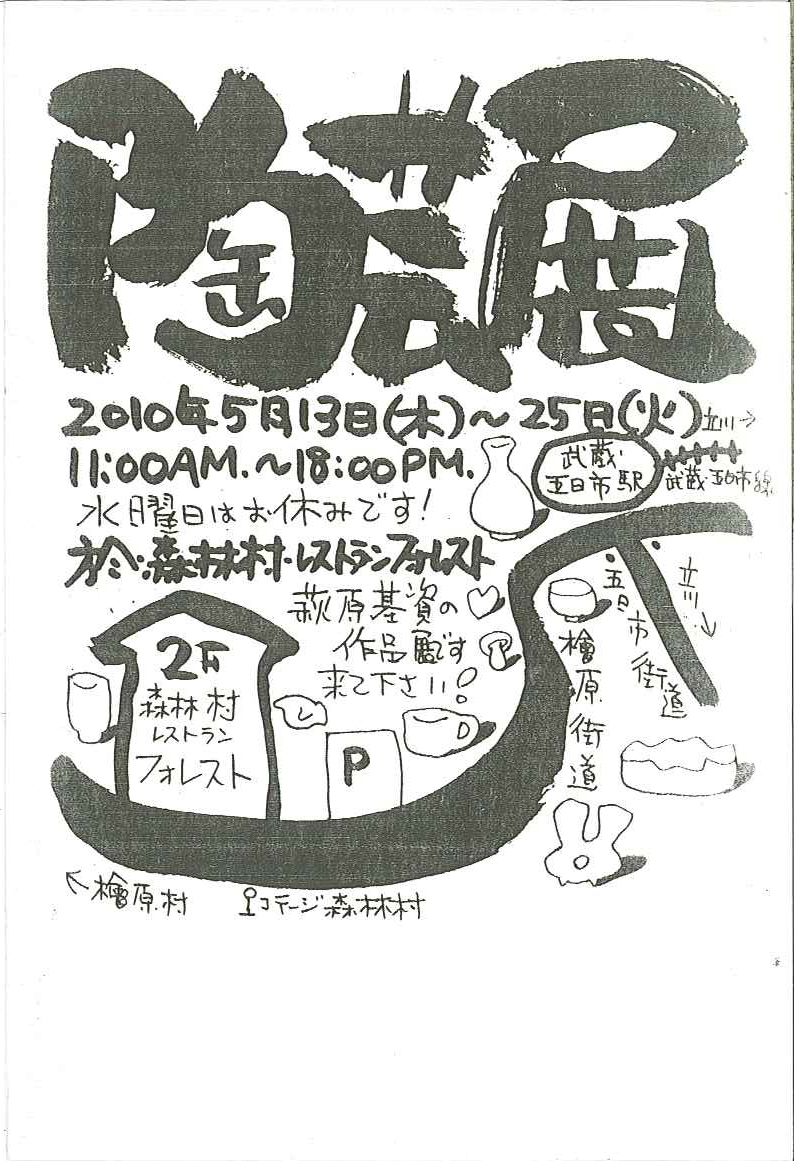 陶芸展
2010年5月13日(木)～25日(火)
11:00AM.～18:00PM.
水曜日はお休みです!
於:森林村・レストランフォレスト
立川→
武蔵・
五日市駅
武蔵・五日市線
萩原基資の
作品展です
来て下さい!
2F
森林村
レストラン
フォレスト
P
立川→
五日市街道
檜原街道
←檜原村
コテージ森林村